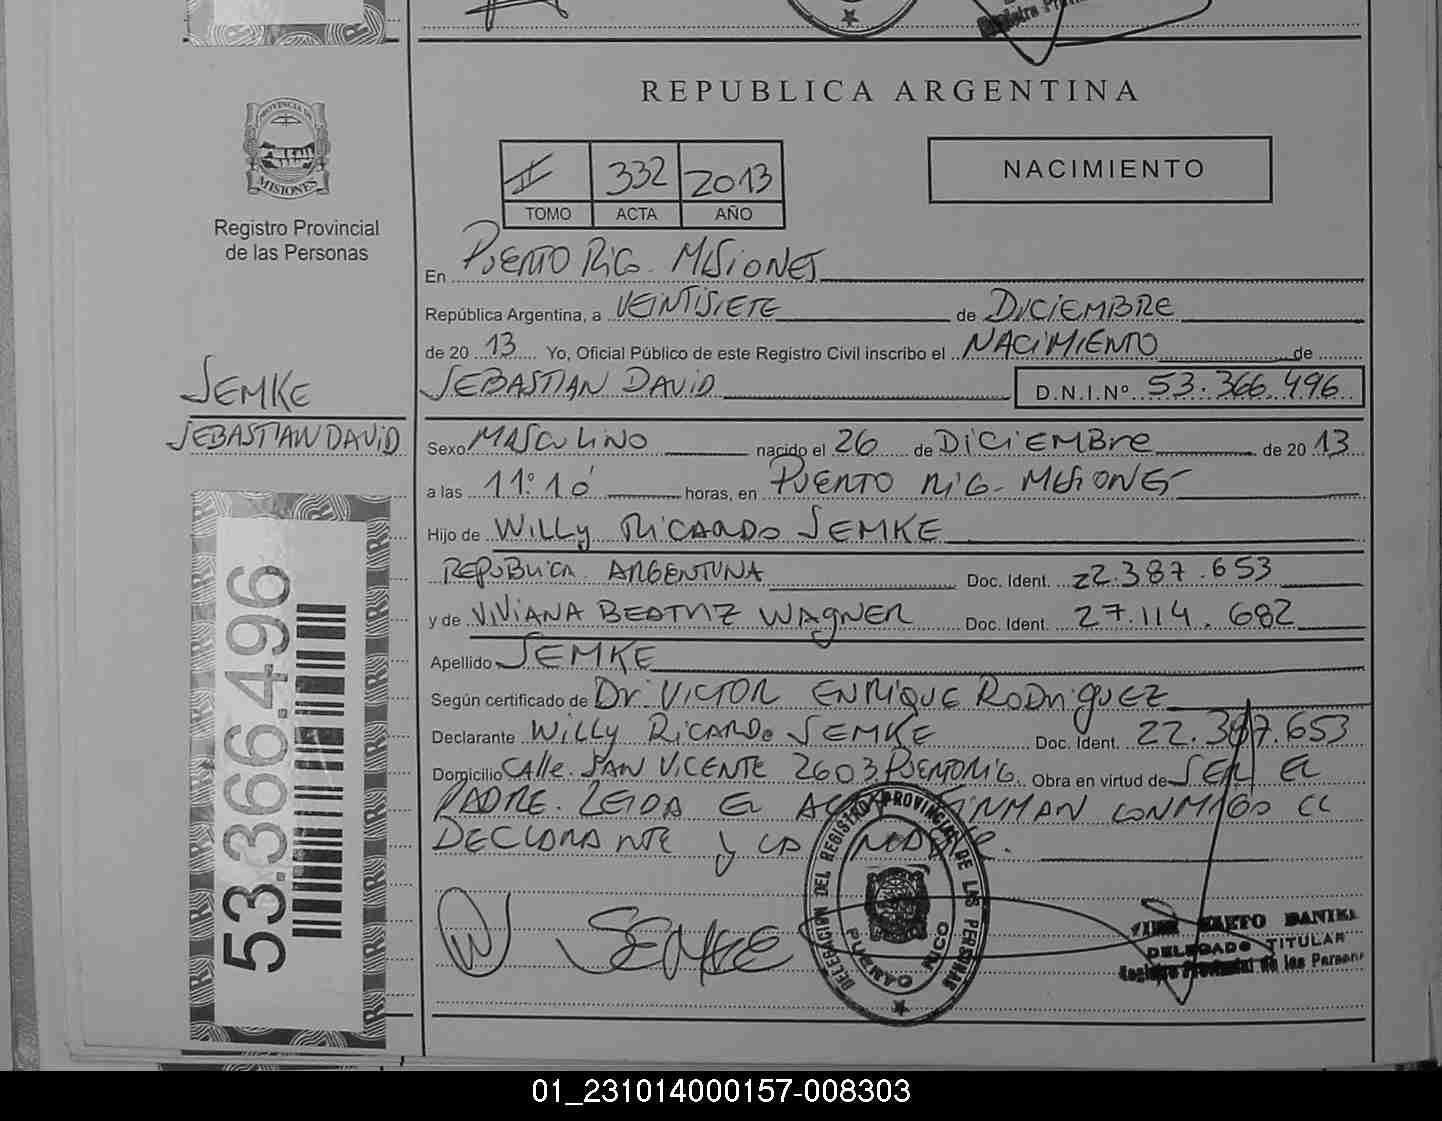 REPUBLICA ARGENTINA
PROVINCIA DE
MISIONES
Registro Provincial
de las Personas
II 332 2013
TOMO ACTA AÑO
NACIMIENTO
En PUERTO RICO - MISIONES
República Argentina, a VEINTISIETE de DICIEMBRE
de 20 13 Yo, Oficial Público de este Registro Civil inscribo el NACIMIENTO de
SEBASTIAN DAVID D.N.I.Nº 53.366.496
SEMKE
SEBASTIAN DAVID
Sexo MASCULINO nacido el 26 de DICIEMBRE de 20 13
a las 11:10' horas, en PUERTO RICO - MISIONES
Hijo de WILLY RICARDO SEMKE
REPUBLICA ARGENTINA Doc. Ident. 22.387.653
y de VIVIANA BEATRIZ WAGNER Doc. Ident. 27.114.682
Apellido SEMKE
Según certificado de Dr. VICTOR ENRIQUE RODRIGUEZ
Declarante WILLY RICARDO SEMKE Doc. Ident. 22.387.653
Domicilio CALLE SAN VICENTE 2603 PUERTO RICO. Obra en virtud de SER EL
PADRE. LEIDA EL ACTA FIRMAN CONMIGO EL
DECLARANTE y LA MADRE.
53.366.496
SEMKE
DELEGACION DEL REGISTRO PROVINCIAL DE LAS PERSONAS
PUERTO RICO
DELEGADO TITULAR
Registro Provincial de las Personas
01_231014000157-008303